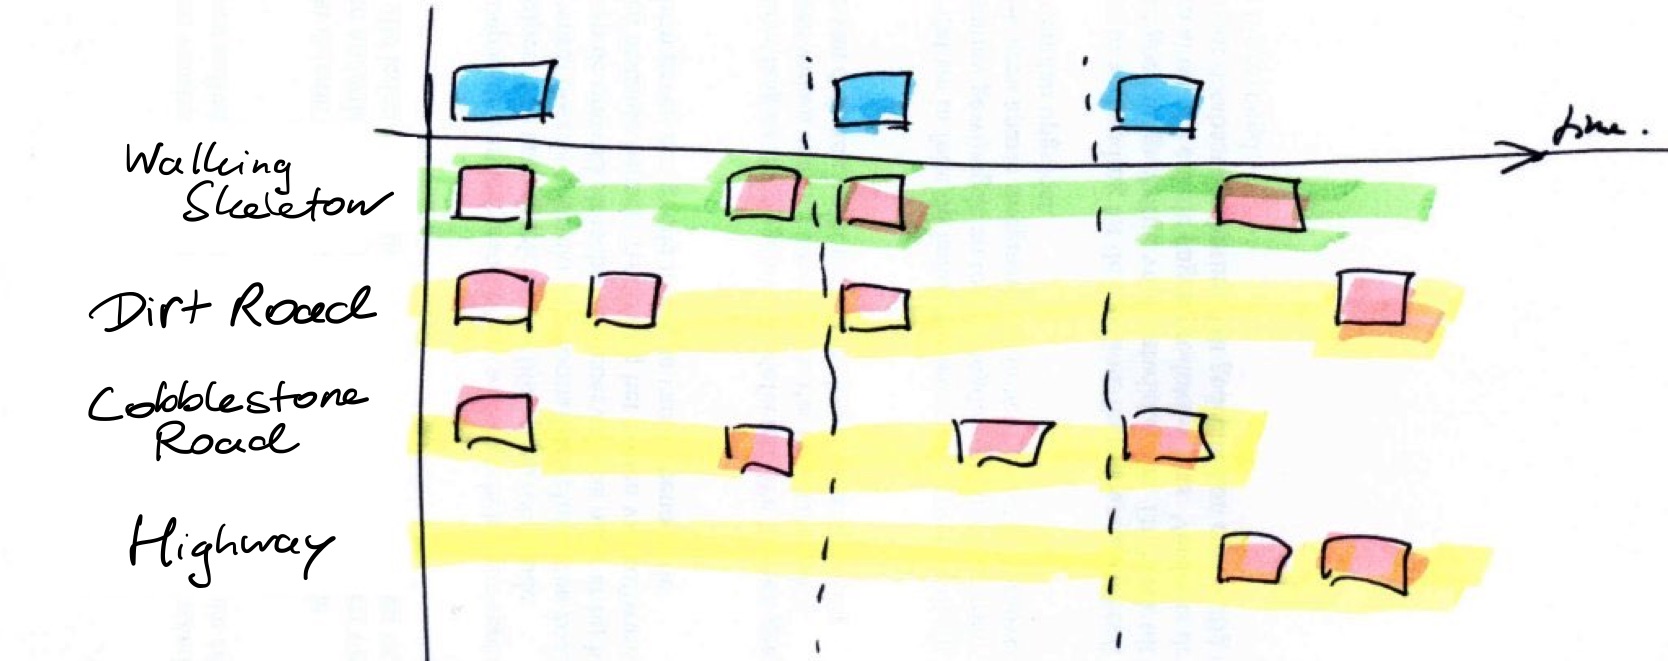 time.
Walking
Skeleton
Dirt Road
Cobblestone
Road
Highway